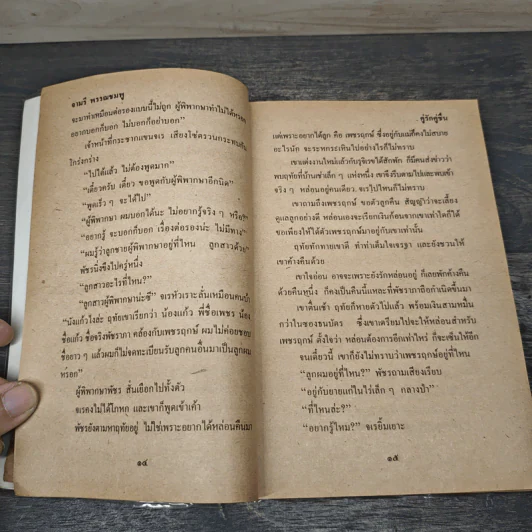 จามรี พรรณชมพู
จะมาทำเหมือนต่อรองแบบนี้ไม่ถูก ผู้พิพากษาทำไม่ได้หรอก
อยากบอกก็บอก ไม่บอกก็อย่าบอก”
เจ้าหน้าที่กระชากแขนจเร เสียงโซ่ตรวนกระทบกัน
โกร่งกร่าง
“ไปได้แล้ว ไม่ต้องพูดมาก”
“เดี๋ยวครับ เดี๋ยว ขอพูดกับผู้พิพากษาอีกนิด”
“พูดเร็ว ๆ จะได้ไป”
“ผู้พิพากษา ผมบอกได้นะ ไม่อยากรู้จริง ๆ หรือ”
“อยากรู้ จะบอกก็บอก เรื่องต่อรองน่ะ ไม่มีทาง”
“ผมรู้ว่าลูกชายผู้พิพากษาอยู่ที่ไหน ลูกสาวด้วย”
พัชรนิ่งขึงไปครู่หนึ่ง
“ลูกสาวอะไรที่ไหน?”
“ลูกสาวผู้พิพากษาน่ะซี” จเรหัวเราะลั่นเหมือนคนบ้า
“น้องแก้วไงล่ะ ฤทัยเขาเรียกว่า น้องแก้ว พี่ชื่อเพชร น้อง
ชื่อแก้ว ชื่อจริงพัชราภา คล้องกับเพชรฤกษ์ ผมไม่ค่อยชอบ
ชื่อยาว ๆ แล้วผมก็ไม่จดทะเบียนรับลูกคนอื่นมาเป็นลูกผม
หรอก”
ผู้พิพากษาพัชร สั่นเยือกไปทั้งตัว
จเรคงไม่ได้โกหก และเขาก็พูดเข้าเค้า
พัชรยังตามหาฤทัยอยู่ ไม่ใช่เพราะอยากได้หล่อนคืนมา
๑๔
คู่รักคู่ชื่น
แต่เพราะอยากได้ลูก คือ เพชรฤกษ์ ซึ่งอยู่กับแม่ก็คงไม่สบาย
อะไรนัก จะระหกระเหินไปอย่างไรก็ไม่ทราบ
เขาแต่งงานใหม่แล้วกับรุจิเรขได้สักพัก ก็มีคนส่งข่าวว่า
พบฤทัยที่บ้านเช่าเล็ก ๆ แห่งหนึ่ง เขาจึงรีบตามไปและพบเข้า
จริง ๆ หล่อนอยู่คนเดียว จเรไปไหนก็ไม่ทราบ
เขาถามถึงเพชรฤกษ์ ขอตัวลูกคืน สัญญาว่าจะเลี้ยง
ดูแลอย่างดี หล่อนเองจะเรียกเงินก้อนจากเขาเท่าใดก็ได้
ขอเพียงให้ได้ตัวเพชรฤกษ์มาอยู่กับเขาเท่านั้น
ฤทัยทักทายเขาดี ทำท่าเต็มใจเจรจา และยังชวนให้
เขาค้างคืนด้วย
เขาใจอ่อน อาจจะเพราะยังรักหล่อนอยู่ ก็เลยพักค้างคืน
ด้วยคืนหนึ่ง ก็คงเป็นคืนนี้แหละที่พัชราภาถือกำเนิดขึ้นมา
เขาตื่นเช้า ฤทัยก็หายตัวไปแล้ว พร้อมเงินสามหมื่น
กว่าในซองธนบัตร ซึ่งเขาเตรียมไปจะให้หล่อนสำหรับ
เพชรฤกษ์ ตั้งใจว่า หล่อนต้องการอีกเท่าไหร่ ก็จะเซ็นให้อีก
จนเดี๋ยวนี้ เขาก็ยังไม่ทราบว่าเพชรฤกษ์อยู่ที่ไหน
“ลูกผมอยู่ที่ไหน?” พัชรถามเสียงเรียบ
“อยู่กับยายแก่ในไร่เล็ก ๆ กลางป่า”
“ที่ไหนล่ะ?”
“อยากรู้ไหม?” จเรยิ้มเยาะ
๑๕